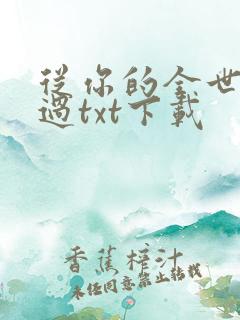 從你的全世
過txt下載
香蕉榨汁
未經同意禁止轉載